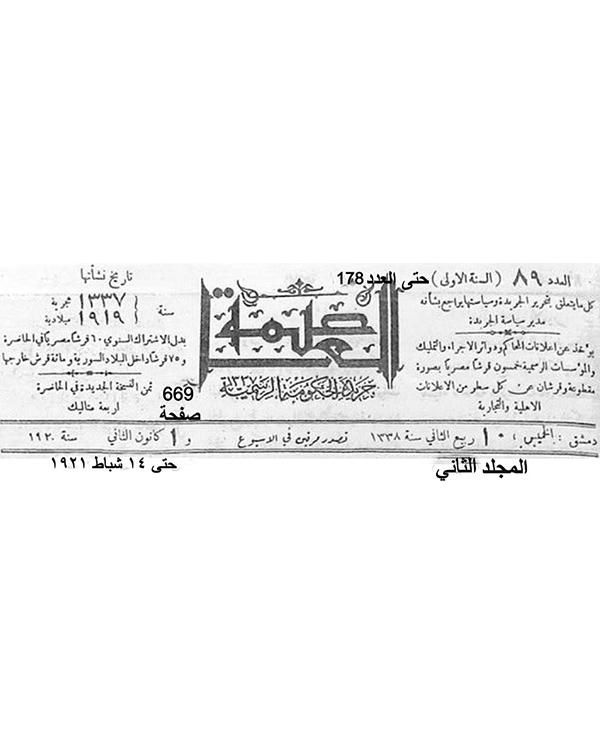 العدد ٨٩ (السنة الاولى) حتى العدد 178
كل مايتعلق بتحرير الجريدة وسياستها يراجع بشأنه
مدير سياسة الجريدة:
يؤخذ عن اعلانات المحاكم ودوائر الاجراء والتمليك
والمؤسسات الرسمية خمسون قرشا مصريا بصورة
مقطوعة وقرشان عن كل سطر من الاعلانات
الاهلية والتجارية
العاصمة
جريدة الحكومة الرسمية
تاريخ نشأتها
سنة ١٣٣٧ هجرية
١٩١٩ ميلادية
بدل الاشتراك السنوي ٦٠ قرشا مصريا في الحاضرة
و٧٥ قرشا داخل البلاد السورية ومائة قرش خارجها
ثمن النسخة الجديدة في الحاضرة
اربعة متاليك
669
صفحة
دمشق : الخميس ١٠ ربيع الثاني سنة ١٣٣٨ تصدر مرتين في الاسبوع و ١ كانون الثاني سنة ١٩٢٠
المجلد الثاني
حتى ١٤ شباط ١٩٢١